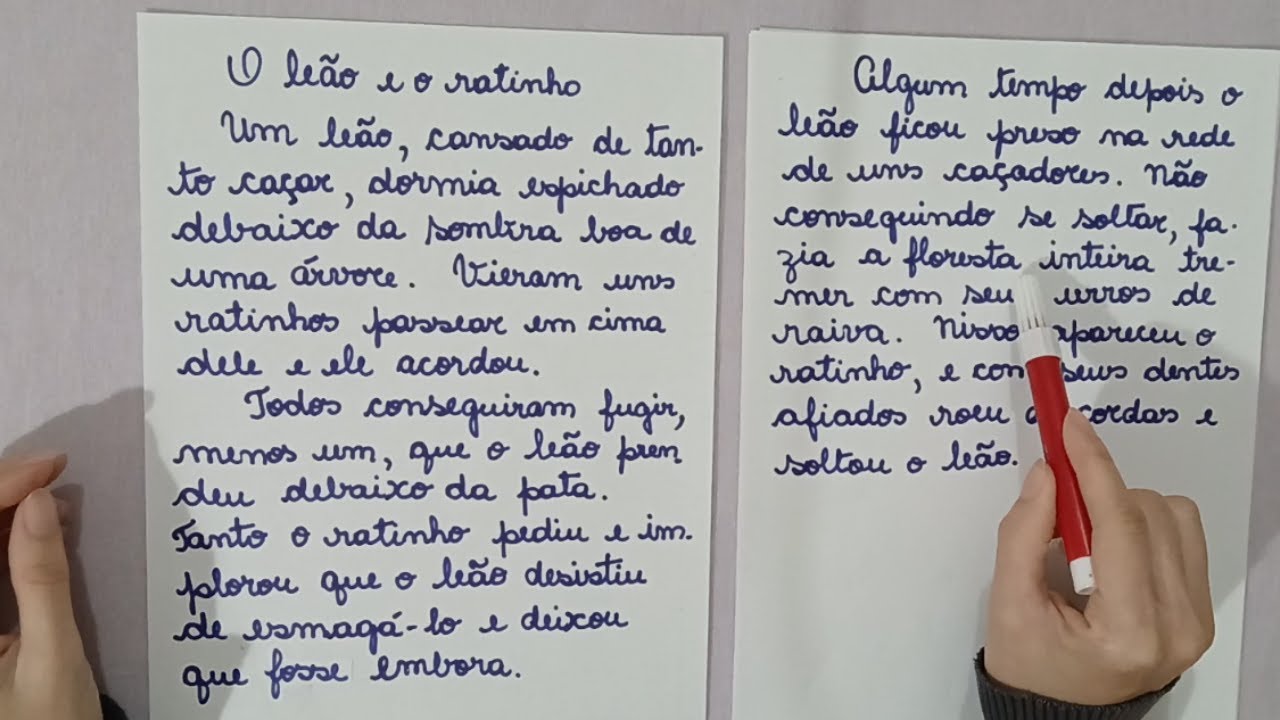 O leão e o ratinho
Um leão, cansado de tan-
to caçar, dormia espichado
debaixo da sombra boa de
uma árvore. Vieram uns
ratinhos passear em cima
dele e ele acordou.
Todos conseguiram fugir,
menos um, que o leão pren
deu debaixo da pata.
Tanto o ratinho pediu e im-
plorou que o leão desistiu
de esmagá-lo e deixou
que fosse embora.
Algum tempo depois o
leão ficou preso na rede
de uns caçadores. Não
conseguindo se soltar, fa-
zia a floresta inteira tre-
mer com seu urros de
raiva. Nisso apareceu o
ratinho, e com seus dentes
afiados roeu cordas e
soltou o leão.